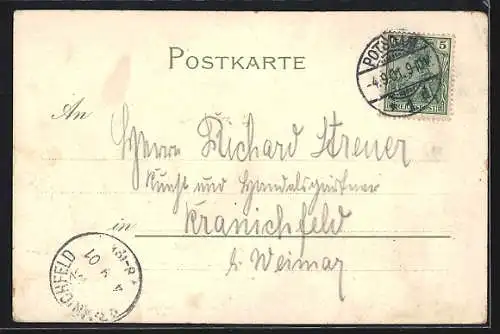 POSTKARTE
POTSDAM
-4.9.01.9-10V.
* 1 d
5
REICHSPOST
An
Herrn Richard Streuer
Kunst und Handelsgärtner
in Kranichfeld
b/ Weimar
KRANICHFELD
4 9 01